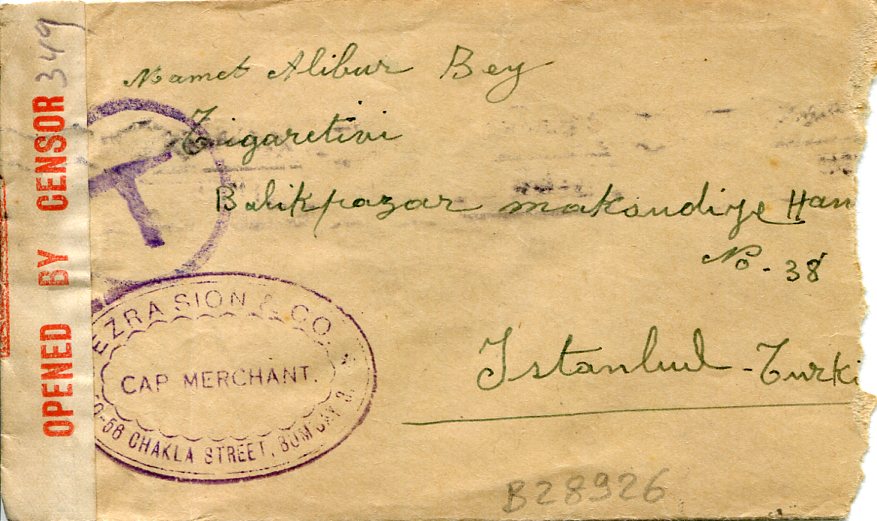 349
OPENED BY CENSOR
T
Mamet Alibur Bey
Tigaretivi
Balikpazar maksudiye Han
No. 38
Istanbul - Turki
EZRA SION & CO.
CAP MERCHANT.
CHAKLA STREET, BOMBAY 3.
B28926